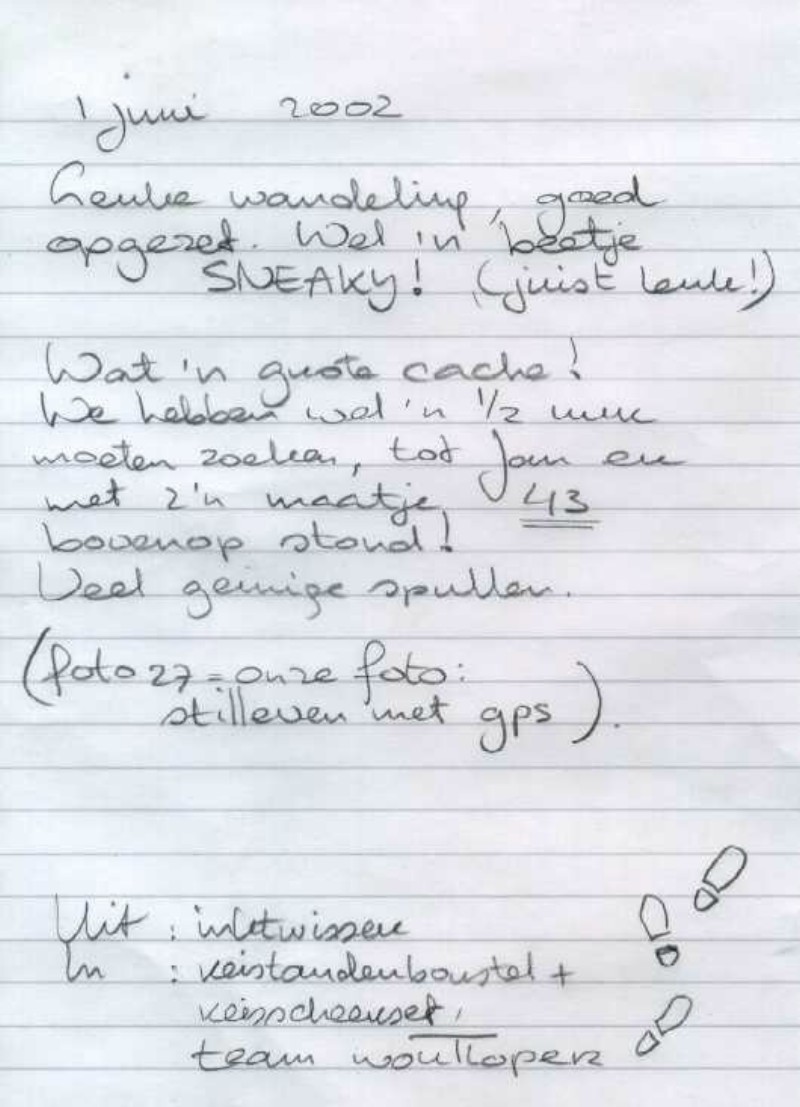 1 juni 2002
Leuke wandeling, goed
opgezet. Wel 'n beetje
SNEAKY! (juist leuk!)
Wat 'n grote cache!
We hebben wel 'n 1/2 uur
moeten zoeken, tot Jan er
met z'n maatje 43
bovenop stond!
Veel geinige spullen.
(foto 27 = onze foto:
stilleven met gps).
Uit : inktwisser
In : reistandenborstel +
reisscheerset,
team woutlopers